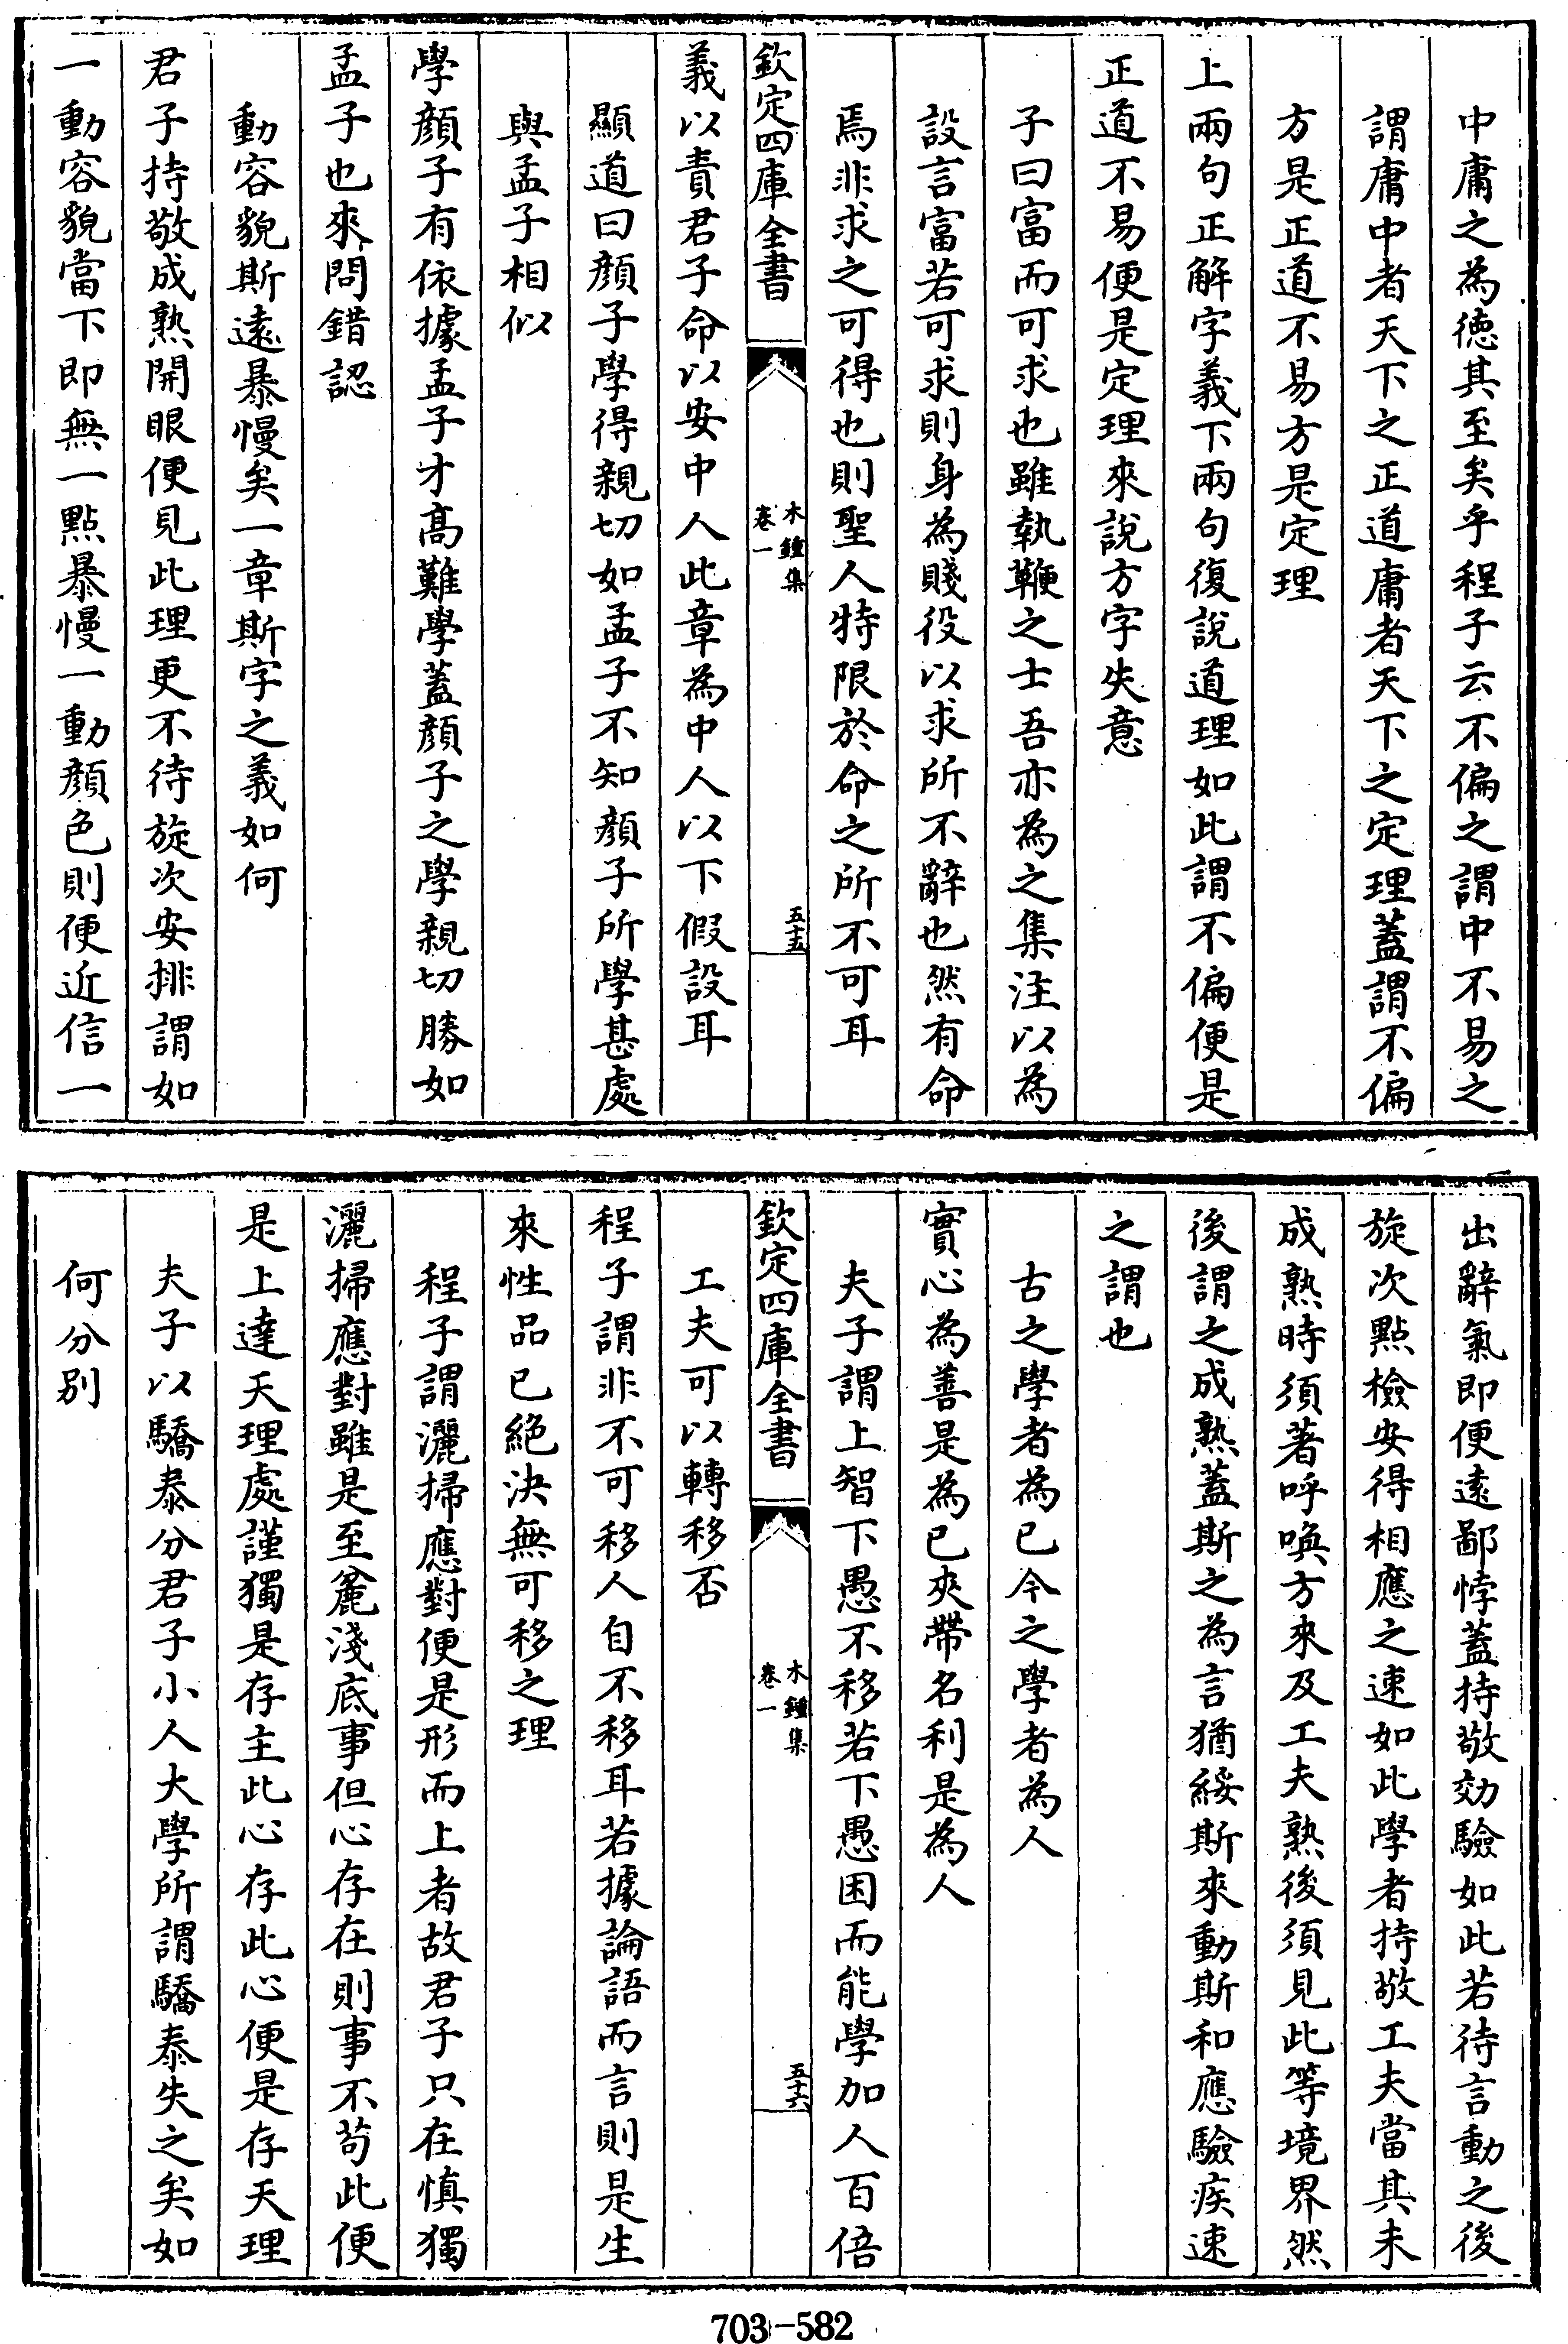 中庸之為徳其至矣乎程子云不偏之謂中不易之
謂庸中者天下之正道庸者天下之定理蓋謂不偏
方是正道不易方是定理
上兩句正解字義下兩句復說道理如此謂不偏便是
正道不易便是定理來說方字失意
子曰富而可求也雖執鞭之士吾亦為之集注以為
設言富若可求則身為賤役以求所不辭也然有命
焉非求之可得也則聖人特限於命之所不可耳
欽定四庫全書
木鍾集
卷一
五十五
義以責君子命以安中人此章為中人以下假設耳
顯道曰顔子學得親切如孟子不知顔子所學甚處
與孟子相似
學顔子有依據孟子才髙難學蓋顔子之學親切勝如
孟子也來問錯認
動容貌斯逺暴慢矣一章斯字之義如何
君子持敬成熟開眼便見此理更不待旋次安排謂如
一動容貌當下即無一點暴慢一動顔色則便近信一
出辭氣即便逺鄙悖蓋持敬効驗如此若待言動之後
旋次點檢安得相應之速如此學者持敬工夫當其未
成熟時須著呼喚方來及工夫熟後須見此等境界然
後謂之成熟蓋斯之為言猶綏斯來動斯和應驗疾速
之謂也
古之學者為已今之學者為人
實心為善是為已夾帶名利是為人
夫子謂上智下愚不移若下愚困而能學加人百倍
欽定四庫全書
木鍾集
卷一
五十六
工夫可以轉移否
程子謂非不可移人自不移耳若據論語而言則是生
來性品已絶決無可移之理
程子謂灑掃應對便是形而上者故君子只在慎獨
灑掃應對雖是至麄淺底事但心存在則事不茍此便
是上達天理處謹獨是存主此心存此心便是存天理
夫子以驕泰分君子小人大學所謂驕泰失之矣如
何分別
703-582